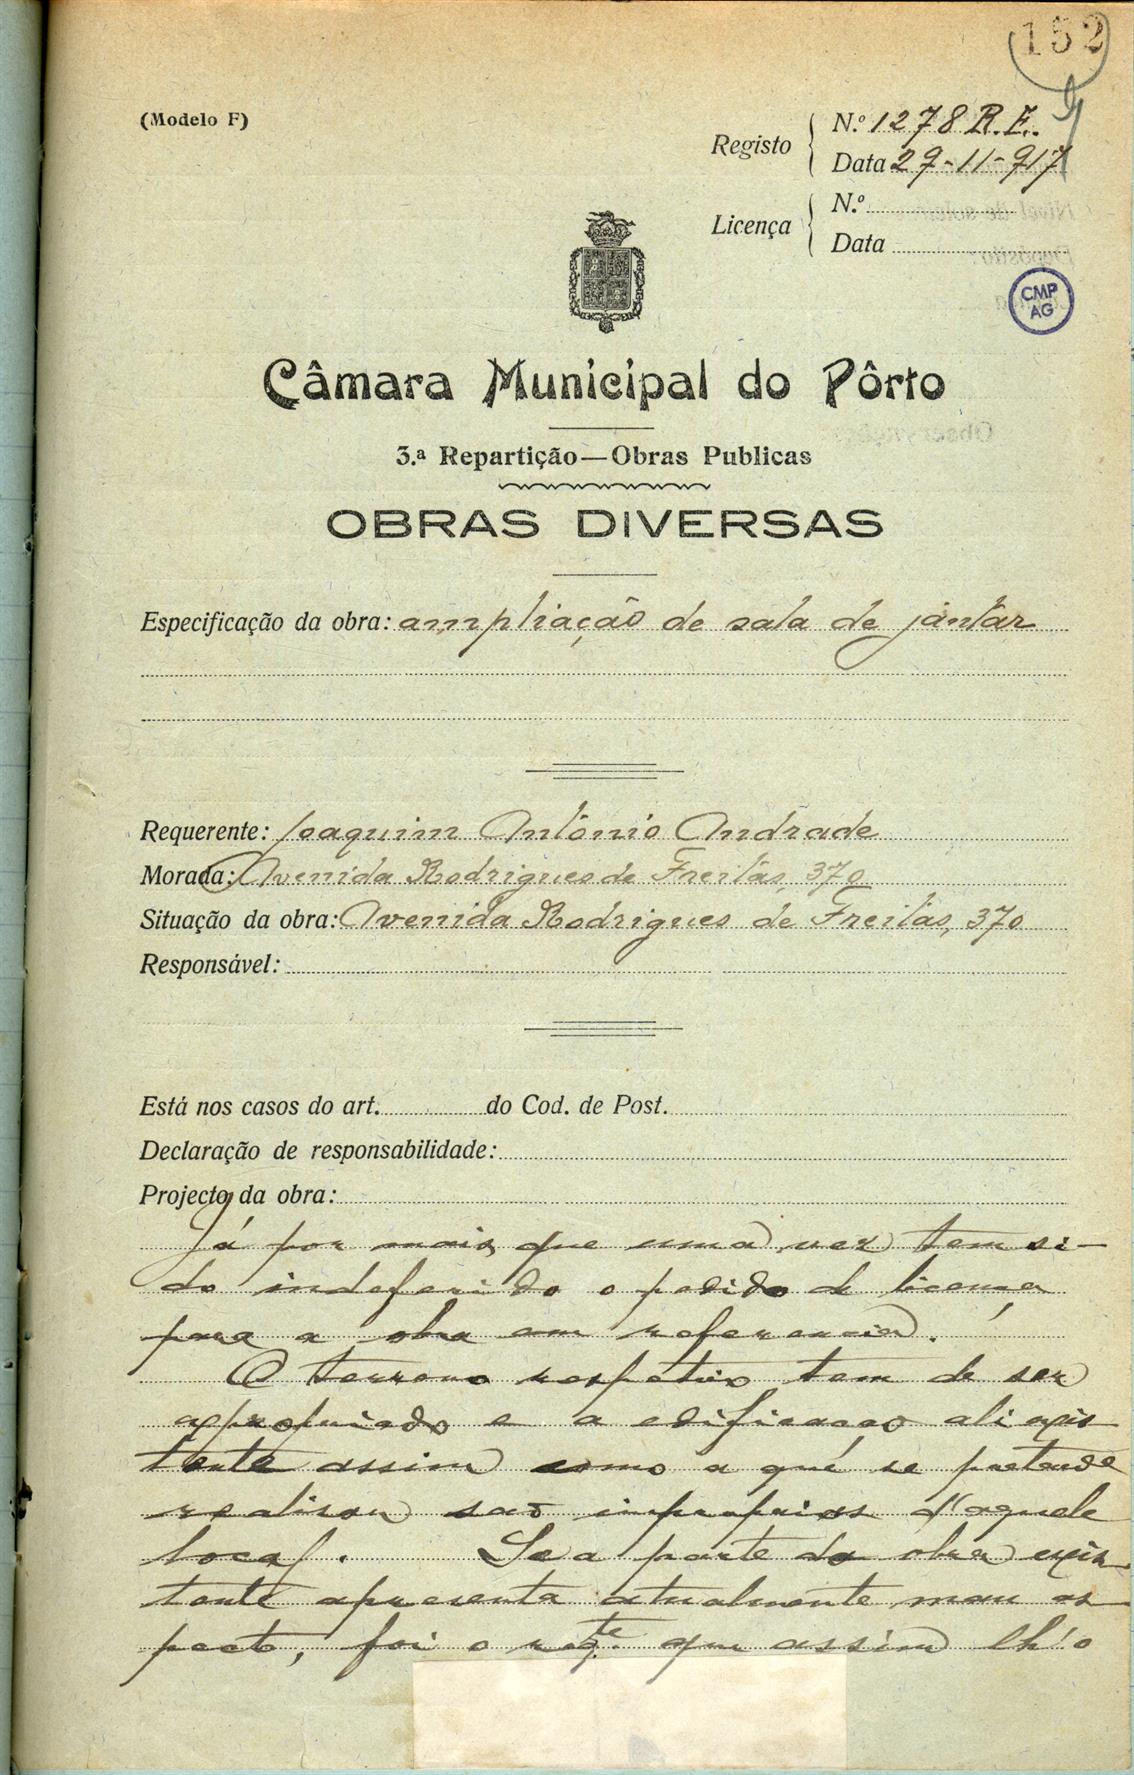 152
(Modelo F)
Registo
N.º 1278 R.E.
Data 29-11-917
Licença
N.º
Data
CMP
AG
Câmara Municipal do Pôrto
3.ª Repartição—Obras Publicas
OBRAS DIVERSAS
Especificação da obra: ampliação de sala de jantar
Requerente: Joaquim António Andrade
Morada: Avenida Rodrigues de Freitas, 370
Situação da obra: Avenida Rodrigues de Freitas, 370
Responsável:
Está nos casos do art. do Cod. de Post.
Declaração de responsabilidade:
Projecto da obra:
Já por mais que uma vez tem si-
do indeferido o pedido de licença
para a obra em referencia.
O terreno respetivo tem de ser
apropriado e a edificacao ali exis
tente assim como a qué se pretende
realisar sao improprias d'aquele
local. Se a parte da obra exis
tente apresenta atualmente mau as
pecto, foi o reqte. que assim lh'o